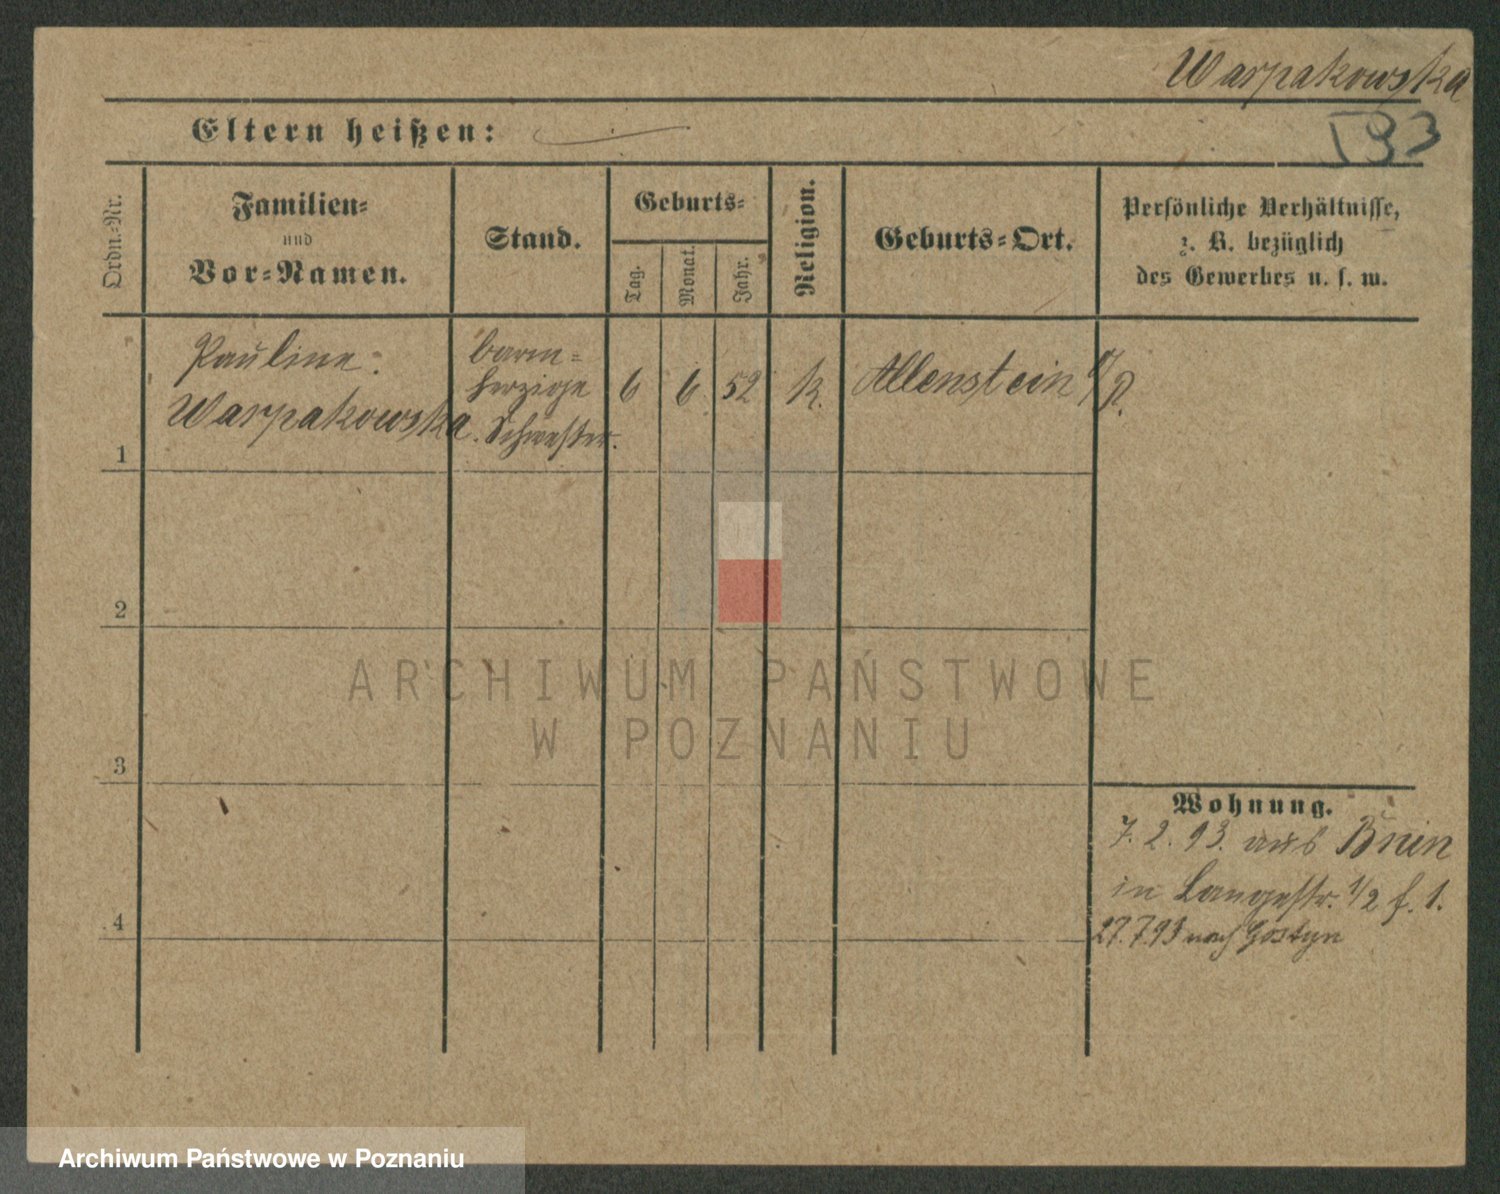 Warpakowska
Eltern heißen:
193
Ordn.-Nr.
Familien-
und
Vor-Namen.
Stand.
Geburts-
Tag.
Monat.
Jahr.
Religion.
Geburts-Ort.
Persönliche Verhältnisse,
z. B. bezüglich
des Gewerbes u. s. w.
1
Pauline
Warpakowska.
barm-
herzige
Schwester.
6
6
52
k.
Allenstein
2
3
4
Wohnung.
7. 2. 93. aus Bnin
in Langestr. 1/2 f. 1.
27.7.93 nach Gostyn
ARCHIWUM PAŃSTWOWE
W POZNANIU
Archiwum Państwowe w Poznaniu